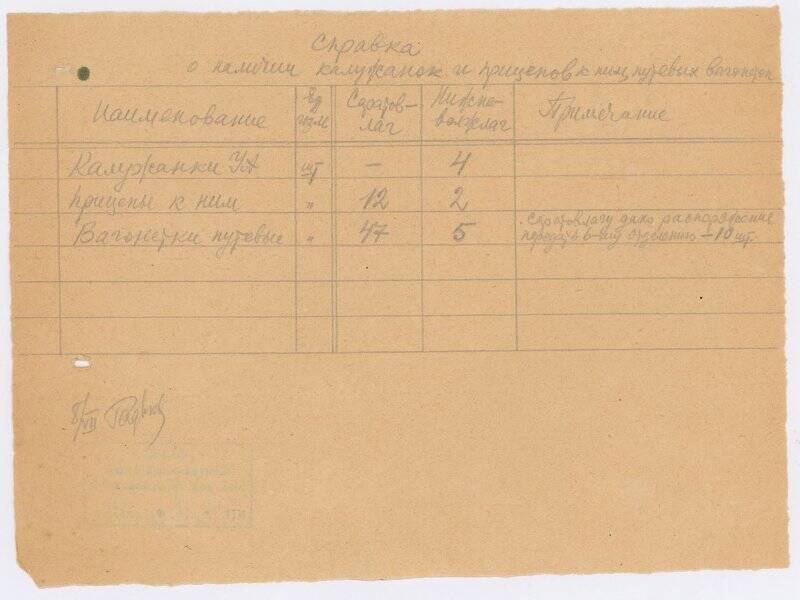 Справка
о наличии калужанок и прицепов к ним, путевых вагонеток
Наименование Ед. изм Саратов-лаг Нижне-волжлаг Примечание
Калужанки УА шт – 4
Прицепы к ним " 12 2
Вагонетки путевые " 47 5 Саратовлагу дано распоряжение
передать 6-му отделению – 10 шт.
8/VII